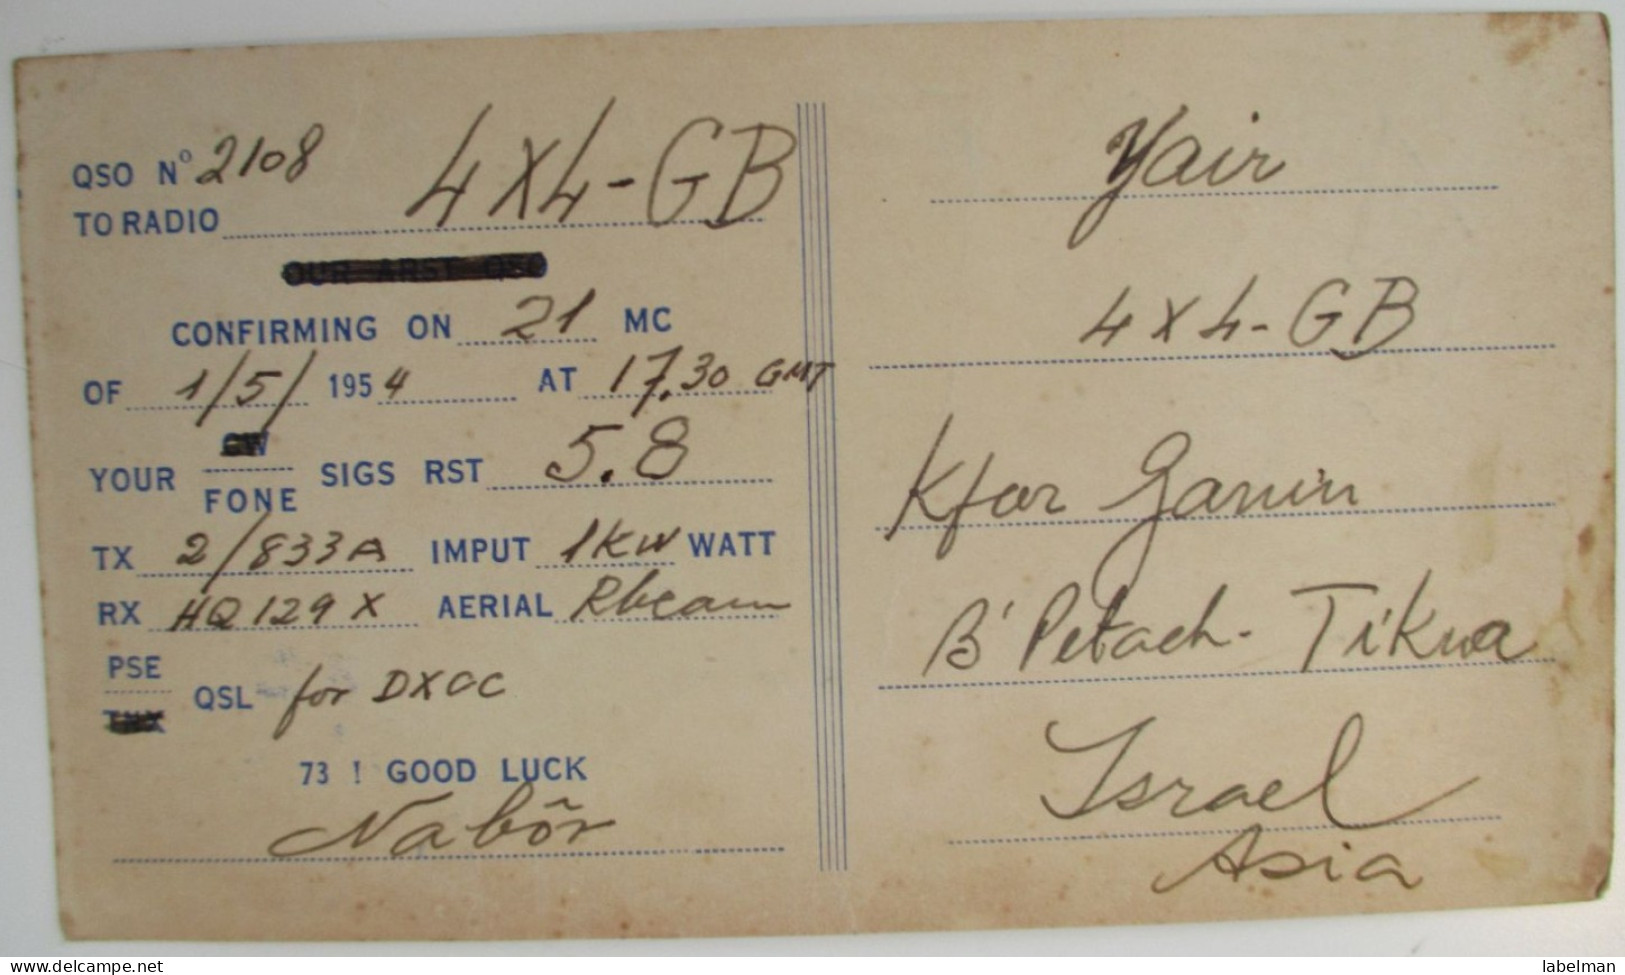 QSO Nº 2108
TO RADIO 4X4-GB
OUR ARST QSO
CONFIRMING ON 21 MC
OF 1/5/ 1954 AT 17.30 GMT
CW
YOUR SIGS RST 5.8
FONE
TX 2/833A IMPUT 1KW WATT
RX HQ129X AERIAL Rbeam
PSE
QSL for DXCC
TNX
73 ! GOOD LUCK
Nabôr
Yair
4X4-GB
Kfar Ganim
B' Petach-Tikwa
Israel
Asia
www.delcampe.net
labelman